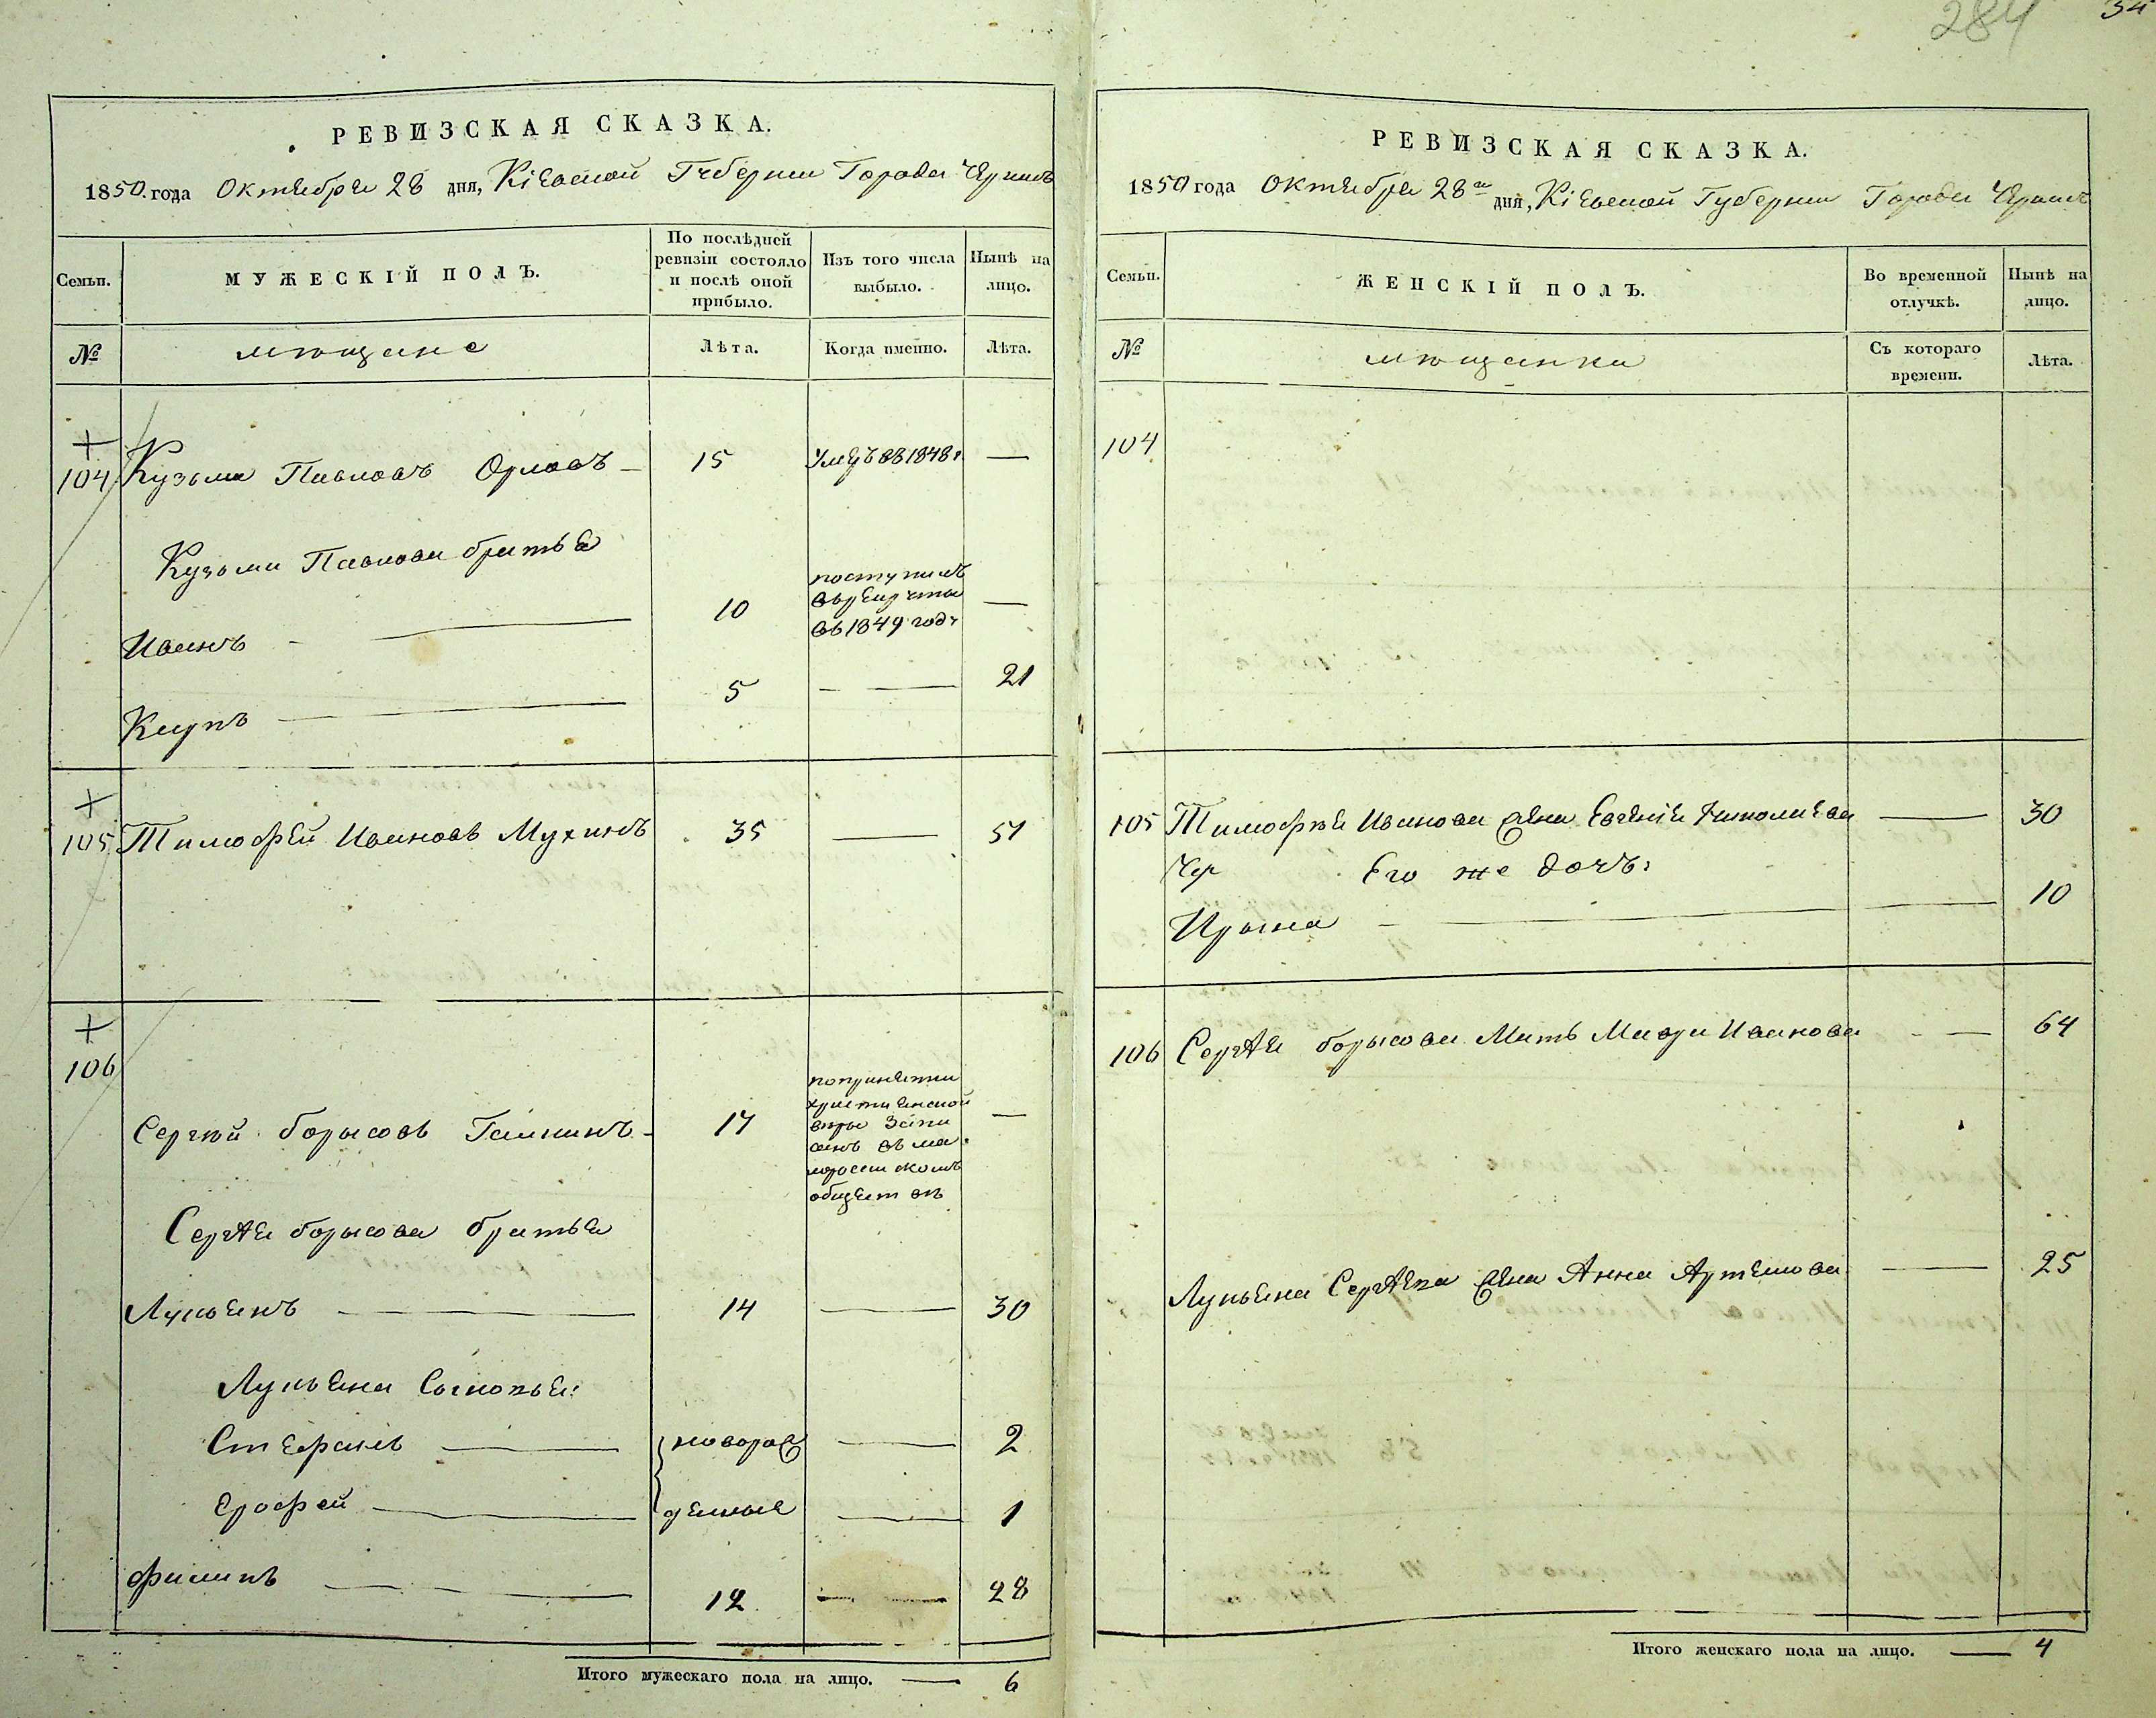 284
34
РЕВИЗСКАЯ СКАЗКА.
1850 года Октября 28 дня, Кіевской Губерніи Города
Семьи. МУЖЕСКІЙ ПОЛЪ. По послѣдней ревизіи состояло и послѣ оной прибыло. Изъ того числа выбыло. Нынѣ на лицо.
№ мѣщане Лѣта. Когда именно. Лѣта.
104 Кузьма Павловъ Орловъ 15 Умеръ въ 1848 г. —
Кузьмы Павлова братья
Иванъ — 10 поступилъ въ рекруты въ 1849 году —
Карпъ — 5 — — 21
105 Тимофей Ивановъ Мухинъ 35 — 51
106
Сергѣй Борысовъ 17 попринятіи христіанской вѣры запи санъ въ ма лоросійскомъ обществѣ —
Сергѣя Борысова братья
Лукьянъ — 14 — 30
Лукьяна Сыновья:
Стефанъ — новорож — 2
Ерофей — денные — 1
Филипъ — 12 — 28
Итого мужескаго пола на лицо. — 6
РЕВИЗСКАЯ СКАЗКА.
1850 года Октября 28 дня, Кіевской Губерніи Города
Семьи. ЖЕНСКІЙ ПОЛЪ. Во временной отлучкѣ. Нынѣ на лицо.
№ мѣщанки Съ котораго времени. Лѣта.
104
105 Тимофѣя Иванова жена Евгенія — 30
Его же дочь:
Ирына — 10
106 Сергѣя Борысова Мать Мавра Иванова — — 64
Лукьяна Сергѣева жена Анна Артемова — 25
Итого женскаго пола на лицо. — 4